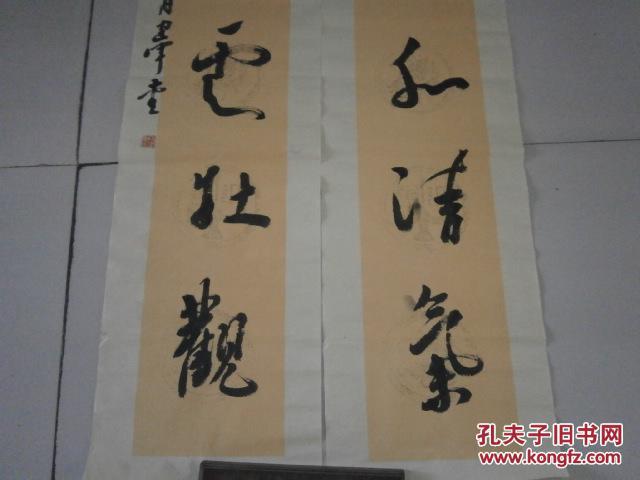 和清氣
雲壯觀
孔夫子旧书网
www.kongfz.com